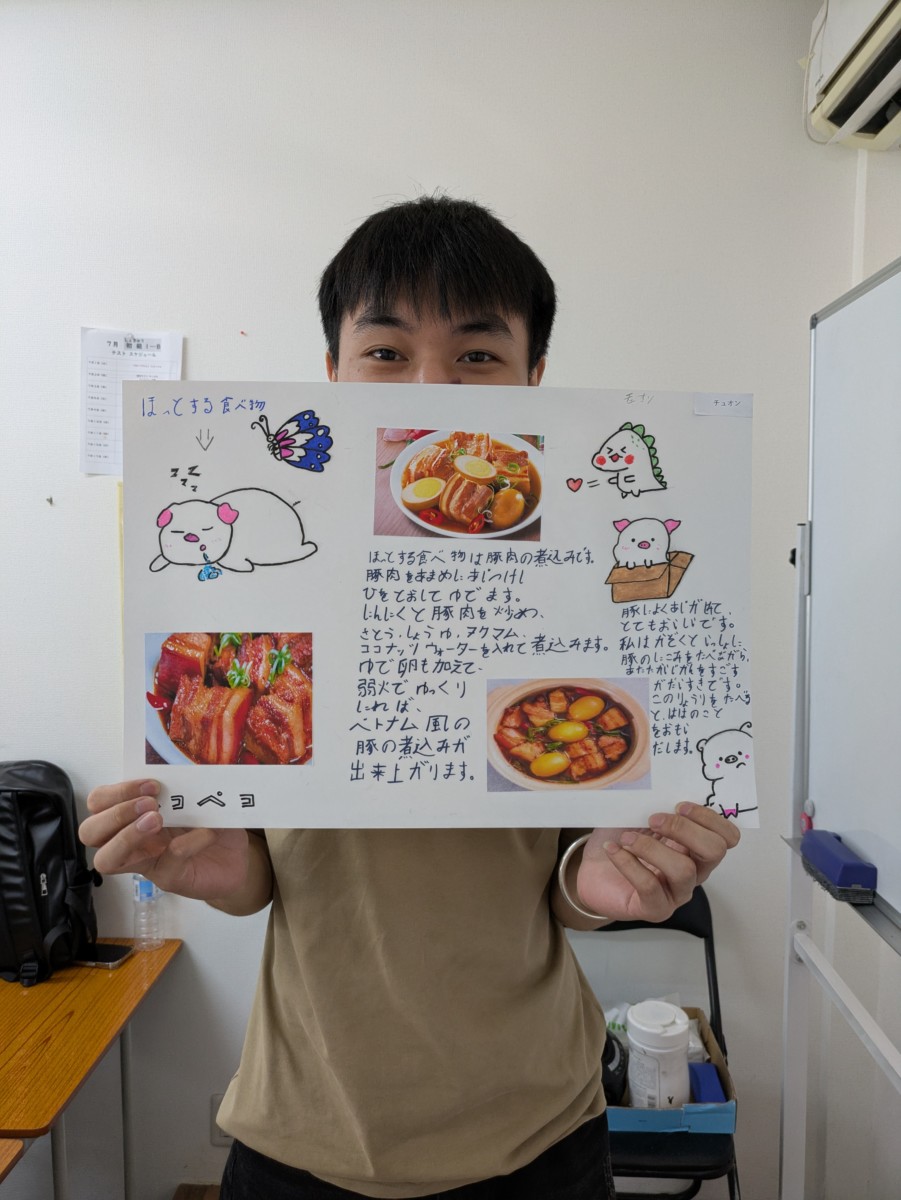 7月 初級1
テスト スケジュール
ほっとする食べ物
チュオン
zzz
ほっとする食べ物は豚肉の煮込みです。
豚肉を
ひをとおしてゆでます。
にんにくと豚肉を炒めつ、
さとう、しょうゆ、ヌクマム、
ココナッツウォーターを入れて煮込みます。
ゆで卵も加えて、
弱火でゆっくり
にれば、
ベトナム風の
豚の煮込みが
出来上がります。
とてもおいしいです。
私はかぞくといっしょに
豚のにこみをたべながら、
またたかじかんをすごす
がだいすきです。
このりょうりをたべる
と、ははのこと
をおもい
だします。
ョペコ